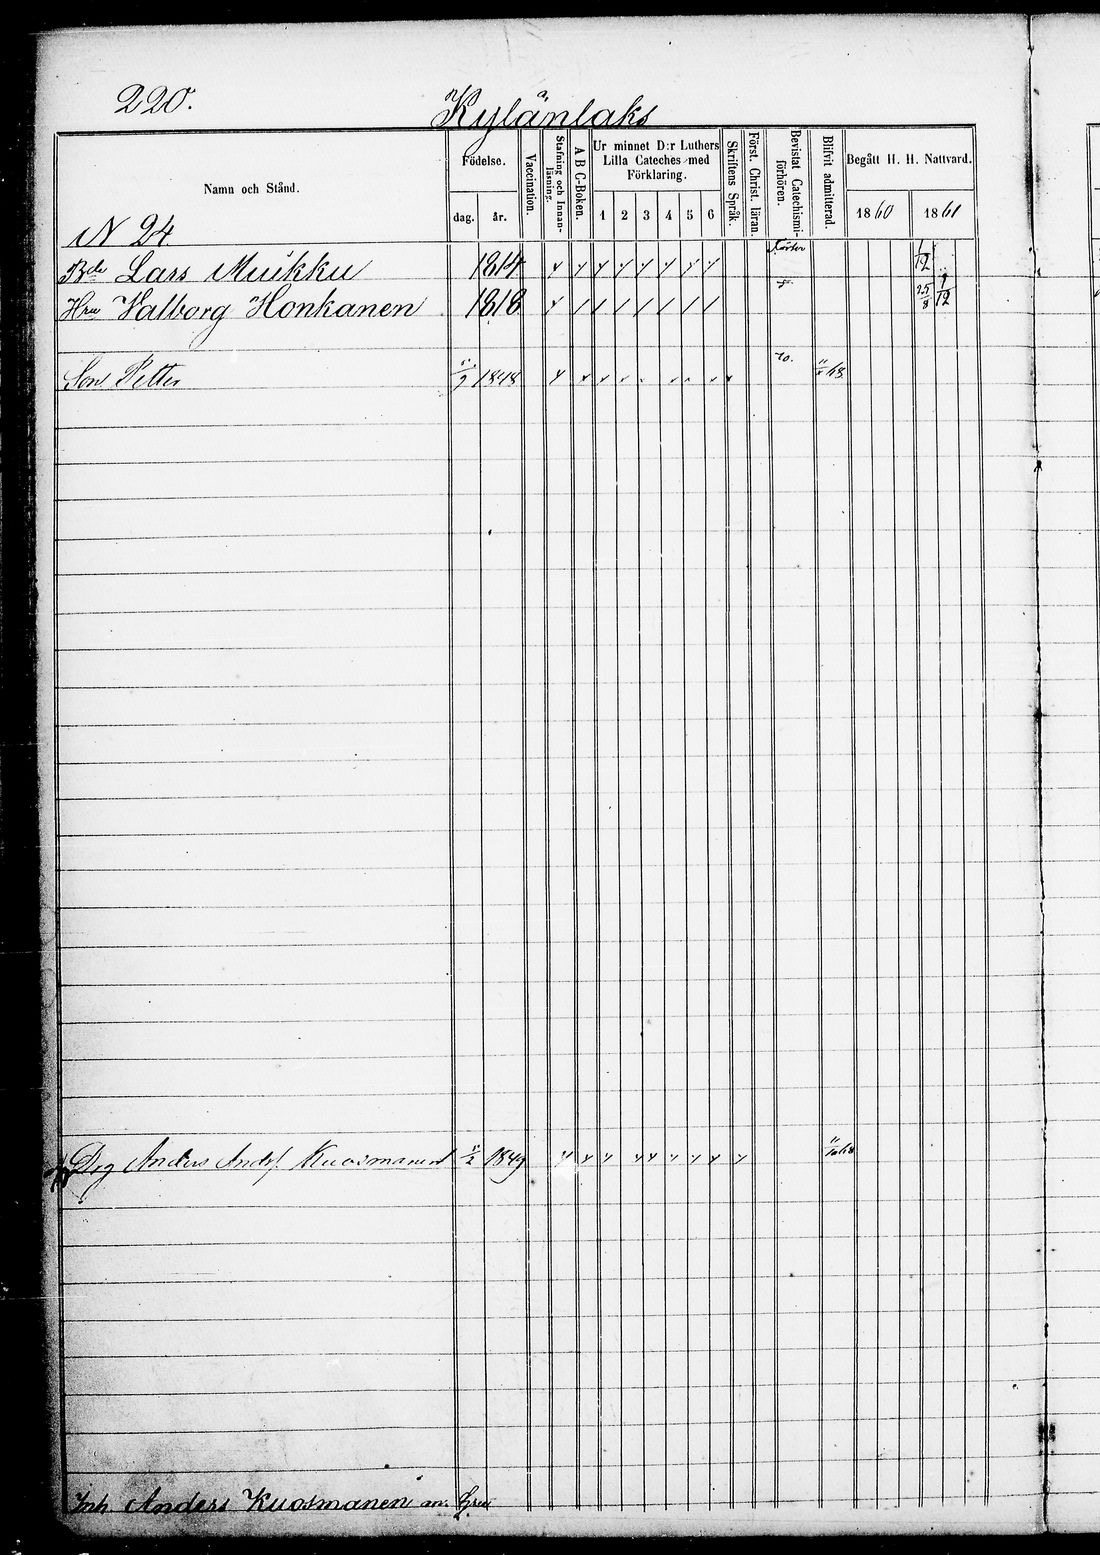 220.
Kylänlaks
Namn och Stånd.
Födelse.
dag.
år.
Vaccination.
Stafning och Innan-läsning.
A B C-Boken.
Ur minnet D:r Luthers Lilla Cateches med Förklaring.
1 2 3 4 5 6
Skriftens Språk.
Först. Christ. läran.
Bevistat Catechismi-förhören.
Blifvit admitterad.
Begått H. H. Nattvard.
1860
1861
N 24
Bde Lars Muikku 1814 1/12
Hru Valborg Honkanen 1818 25/8 1/12
Son Petter 1848
Drg Anders Andsf. Kuosmanen 1849
Inh. Anders Kuosmanen m. Hru